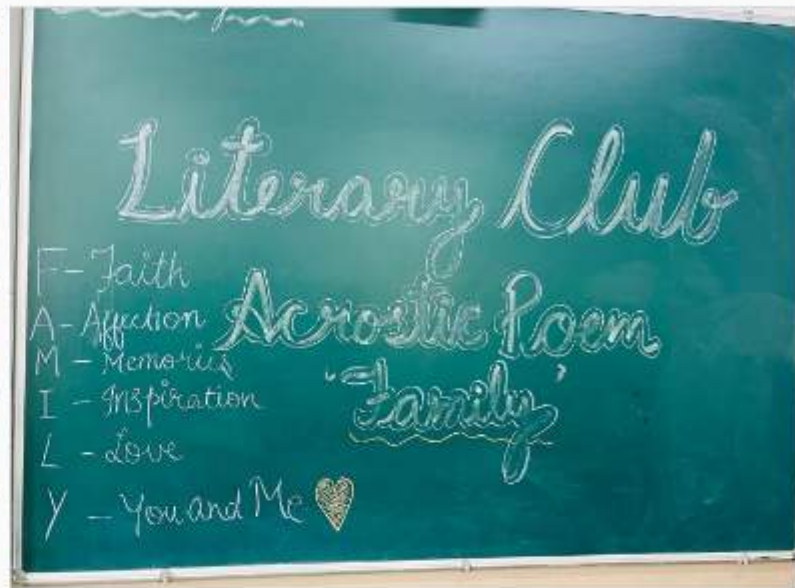 Literary Club
Acrostic Poem
'Family'
F - Faith
A - Affection
M - Memories
I - Inspiration
L - Love
Y - You and Me